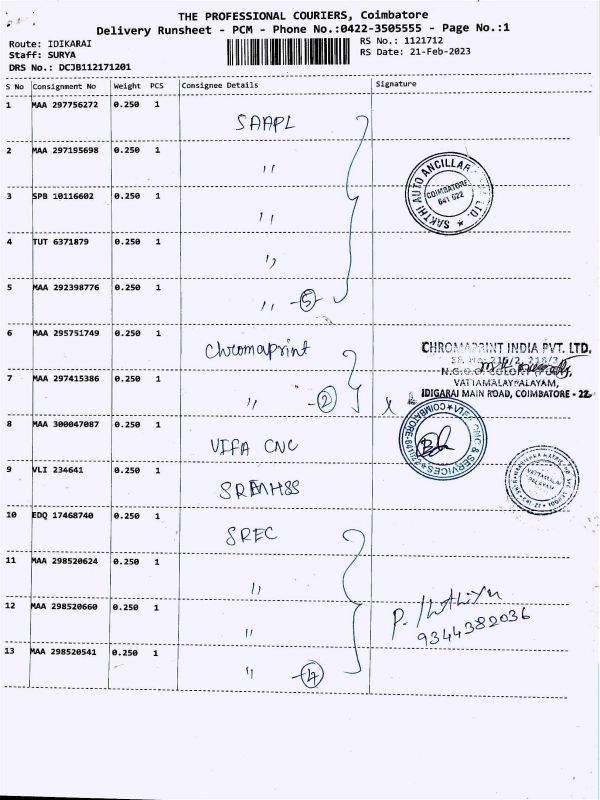 THE PROFESSIONAL COURIERS, Coimbatore
Delivery Runsheet - PCM - Phone No.:0422-3505555 - Page No.:1
Route: IDIKARAI
Staff: SURYA
DRS No.: DCJB112171201
RS No.: 1121712
RS Date: 21-Feb-2023
S No Consignment No Weight PCS Consignee Details Signature
1 MAA 297756272 0.250 1 SAAPL
2 MAA 297195698 0.250 1 "
3 SPB 10116602 0.250 1 "
4 TUT 6371879 0.250 1 "
5 MAA 292398776 0.250 1 " -5
SAKTHI AUTO ANCILLAR LTD.
COIMBATORE
641 022
6 MAA 295751749 0.250 1 Chromaprint
CHROMAPRINT INDIA PVT. LTD.
SF. No. 216/2, 218/3
N.G.G.O. COLONY (POST),
VATTAMALAYPALAYAM,
IDIGARAI MAIN ROAD, COIMBATORE - 22.
7 MAA 297415386 0.250 1 " -2
8 MAA 300047087 0.250 1 VIFA CNC
VIFA CNC & SERVICES
COIMBATORE
9 VLI 234641 0.250 1 SRMHSS
VATTAMALAI
PALAYAM
10 EDQ 17468740 0.250 1 SREC
11 MAA 298520624 0.250 1 "
12 MAA 298520660 0.250 1 "
P.
9344382036
13 MAA 298520541 0.250 1 " -4